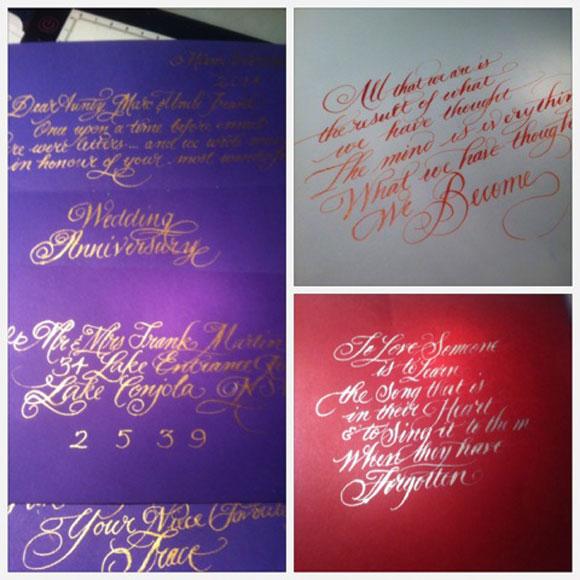 2014
Dear Aunty Mare & Uncle Frank
Once upon a time before email
were letters... and we wrote
in honour of your most
Wedding
Anniversary
Mr & Mrs Frank Martin
34 Lake Entrance
Lake Conjola NS
2539
Your Niece
Trace
All that we are is
the result of what
we have thought
The mind is everythin
What we have though
We Become
To Love Someone
is to Learn
the Song that is
in their Heart
& to Sing it to them
When they have
Forgotten